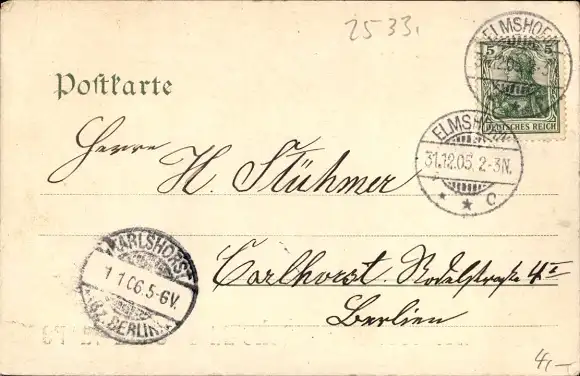 2533.
ELMSHORN
5
DEUTSCHES REICH
Postkarte
ELMSHORN
31.12.05. 2-3N.
* * c
Herrn
H. Stühmer
KARLSHORST
1 1 06. 5-6V.
(BZ. BERLIN)
Carlhorst. Rodelstraße 4I
Berlien
4,-